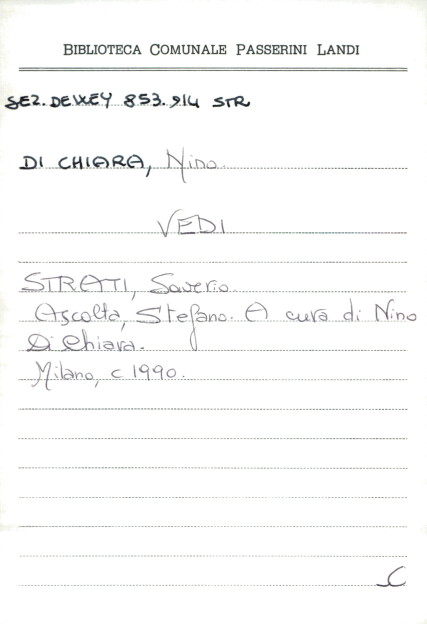 BIBLIOTECA COMUNALE PASSERINI LANDI
SEZ. DEWEY 853.914 STR
DI CHIARA, Nino.
VEDI
STRATI, Saverio.
Ascolta, Stefano. A cura di Nino
Di Chiara.
Milano, c 1990.
C